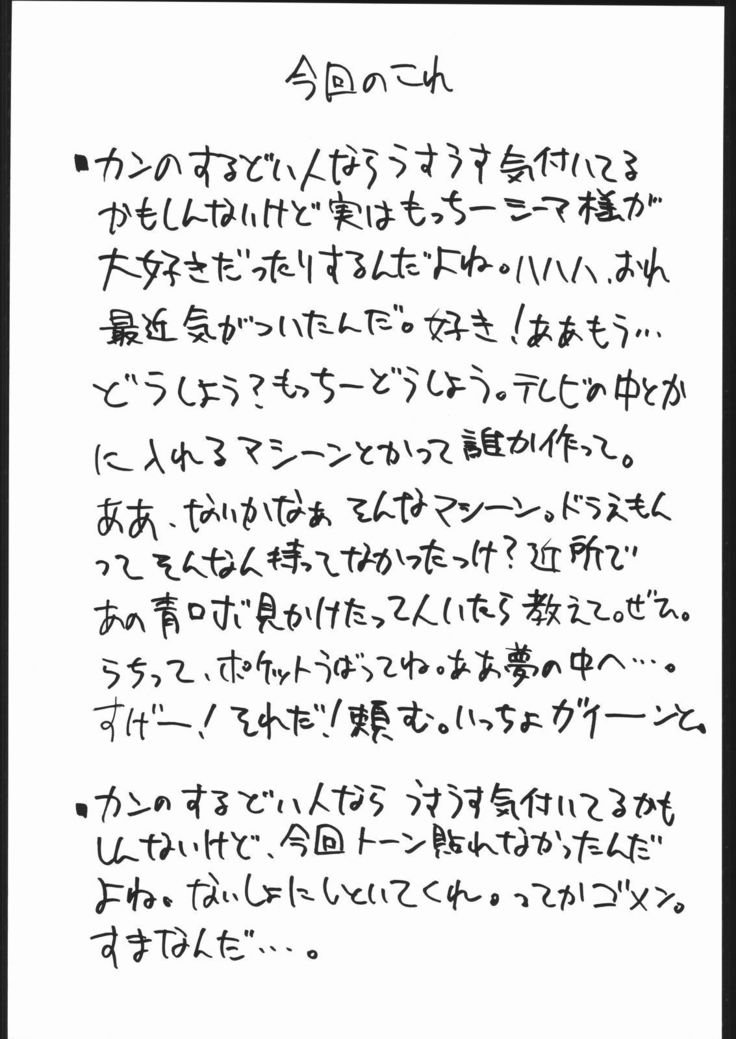 今回のこれ
▪カンのするどい人ならうすうす気付いてる
かもしんないけど実はもっちーシーマ様が
大好きだったりするんだよね。ハハハ、おれ
最近気がついたんだ。好き!ああもう…
どうしよう?もっちーどうしよう。テレビの中とか
に入れるマシーンとかって誰か作って。
ああ、ないかなぁ そんなマシーン。ドラえもん
って そんなん持ってなかったっけ?近所で
あの青ロボ見かけたって人いたら教えて。ぜひ。
らちって、ポケットうばってね。ああ夢の中へ…。
すげー!それだ!頼む。いっちょガイーンと。
▪カンのするどい人なら うすうす気付いてるかも
しんないけど、今回トーン貼れなかったんだ
よね。ないしょにしといてくれ。ってかゴメン。
すまなんだ…。